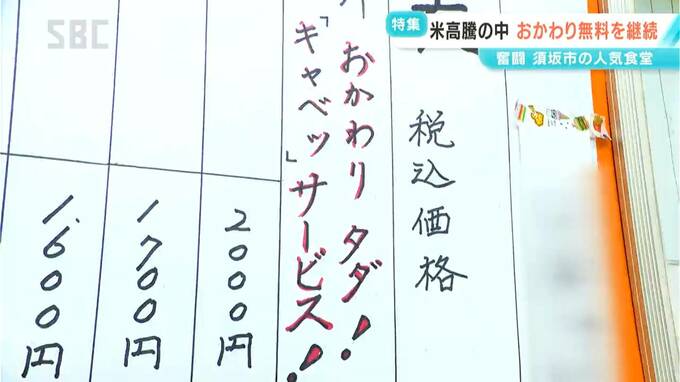 SBC
特集
米高騰の中 おかわり無料を継続
奮闘 須坂市の人気食堂
税込価格
おかわりタダ!
「キャベツ」サービス!
2000円
1700円
1.600円